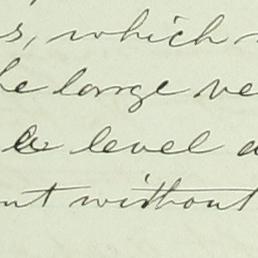 s, which
he large ve
level a
nt without